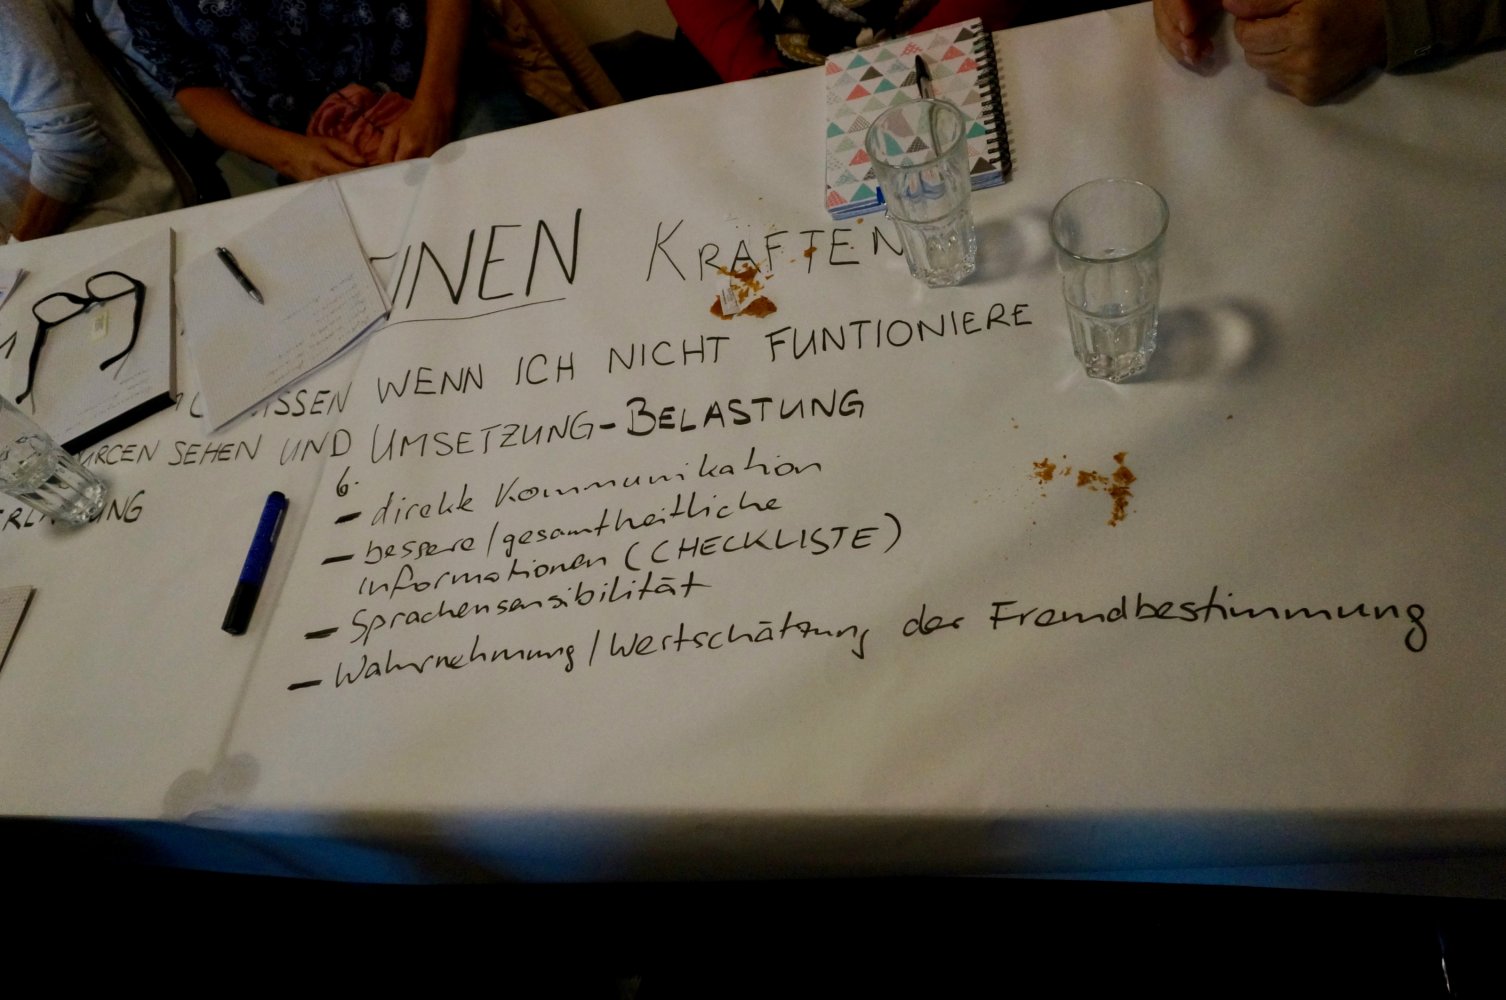 INEN KRAFTEN
ISSEN WENN ICH NICHT FUNTIONIERE
URCEN SEHEN UND UMSETZUNG-BELASTUNG
UNG
6.
- direkte Kommunikation
- bessere/gesamtheitliche
Informationen (CHECKLISTE)
- Sprachensensibilität
- Wahrnehmung/Wertschätzung der Fremdbestimmung